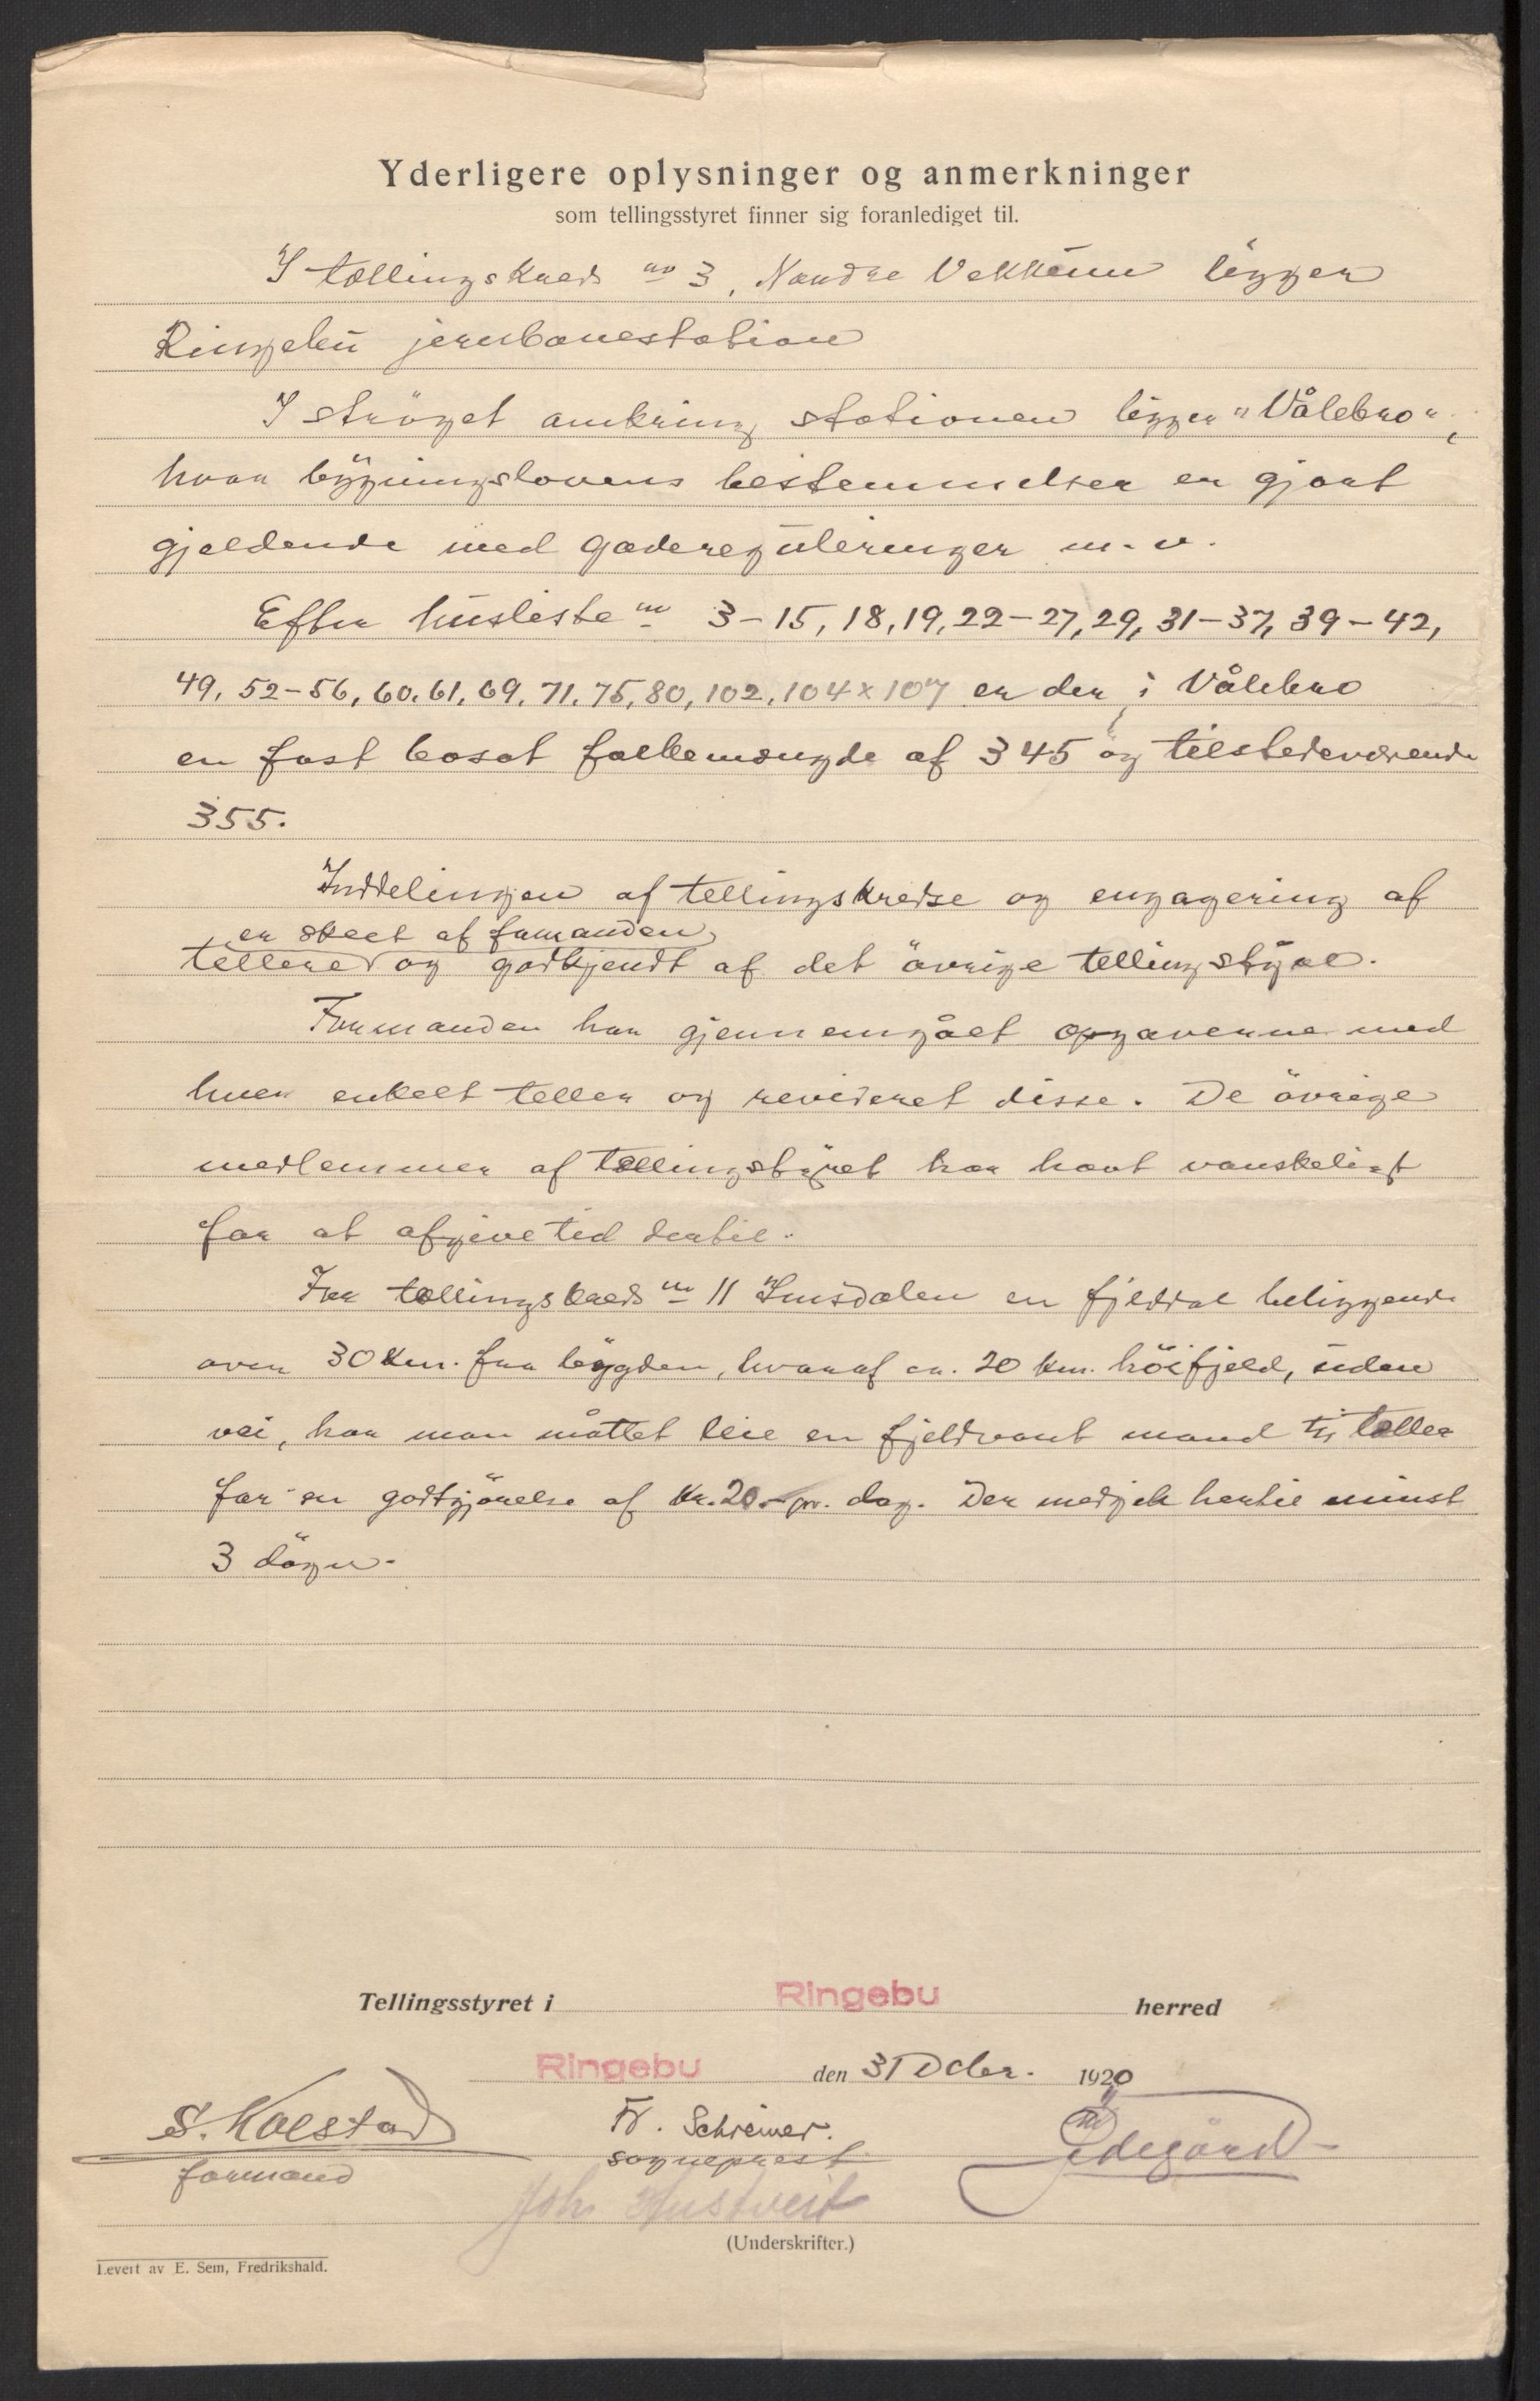 Yderligere oplysninger og anmerkninger
som tellingsstyret finner sig foranlediget til.
I tællingskreds no 3, Nordre Vekkum ligger
Ringebu jernbanestation
I strøget omkring stationen ligger "Vålebro",
hvor bygningslovens bestemmelser er gjort
gjeldende med gadereguleringer m. v.
Efter husliste nr 3-15, 18, 19, 22-27, 29, 31-37, 39-42,
49, 52-56, 60, 61, 69, 71, 75, 80, 102, 104 x 107 er der i Vålebro
en fast bosat folkemængde af 345 og tilstedeværende
355.
Inddelingen af tellingskredse og engagering af
er skeet af formanden
tellere og godkjendt af det øvrige tellingsstyre.
Formanden har gjennemgået opgaverne med
hver enkelt teller og revideret disse. De øvrige
medlemmer af tællingsstyret har havt vanskeligt
for at afgive tid dertil.
For tællingskreds nr 11 Imsdalen en fjelddal beliggende
over 30 km. fra bygden, hvoraf ca. 20 km. høifjeld, uden
vei, har man måttet leie en fjeldvant mand til tæller
for en godtgjørelse af kr. 20.- pr. dag. Der medgik hertil minst
3 døgn.
Tellingsstyret i Ringebu herred
Ringebu den 31 Dcbr. 1920
S. Kolstad
formand
Fr. Schreiner.
sogneprest
Ødegård
Joh. Hustveit
(Underskrifter.)
Levert av E. Sem, Fredrikshald.